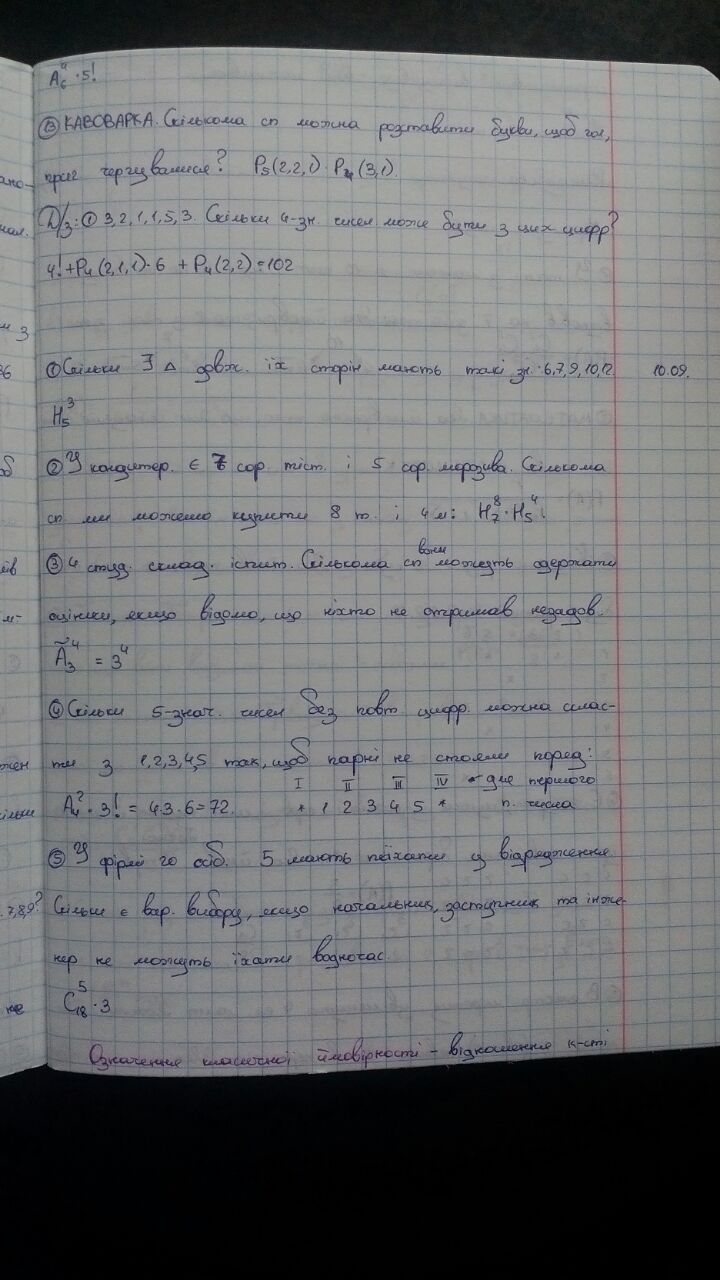 A₆⁴ · 5!
⑬ КАВОВАРКА. Скількома сп можна розставити букви, щоб гол,
приг чергувалися? P₅(2,2,1) · P₄(3,1).
Д/з: ① 3,2,1,1,5,3. Скільки 4-зн. чисел може бути з цих цифр?
4! + P₄(2,1,1)·6 + P₄(2,2) = 102
① Скільки ∃ △ довж. їх сторін мають такі зн.: 6,7,9,10,12. 10.09.
H₅³
② У кондитер. є 7 сор. тіст. і 5 сор. морозива. Скількома
сп ми можемо купити 8 т. і 4 м: H₇⁸ · H₅⁴.
③ 4 студ. склад. іспит. Скількома сп вони можуть одержати
оцінки, якщо відомо, що ніхто не отримав незадов.
Ã₃⁴ = 3⁴
④ Скільки 5-знач. чисел без повт цифр. можна склас-
ти з 1,2,3,4,5 так, щоб парні не стояли поряд:
I II III IV - для першого
A₄² · 3! = 4·3·6 = 72. * 1 2 3 4 5 * п. числа
⑤ У фірмі 20 осіб. 5 мають поїхати у відрядження.
Скільки є вар. вибору, якщо начальник, заступник та інже-
нер не можуть їхати водночас.
C₁₈⁵ · 3
Означення класичної ймовірності - відношення к-сті
7,8,9?
не